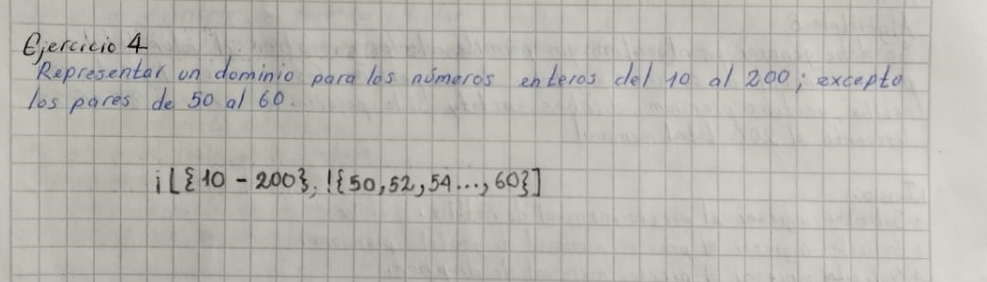 Ejercicio 4
Representar un dominio para los números enteros del 10 al 200; excepto
los pares de 50 al 60.
i[{10 - 200}, !{50,52,54...,60}]